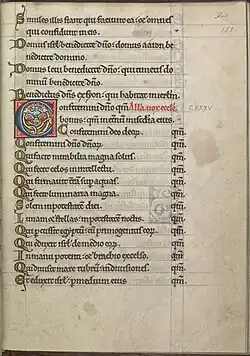 Similes illis fiant qui faciunt ea: et omnes
qui confidunt in eis.
Domus isrl benedicite dño: domus aaron be
nedicite domino.
Domus levi benedicite dño: qui timetis do
minū benedicite dño.
Benedictus dñs ex syon: qui habitat in ierlm.
Confitemini dño qm̄ Alla. vox eccle.
bonus: qm̄ in eternū misericordia eius. CXXXV
Confitemini deo deor. qm̄.
Confitemini dño dñor. qm̄.
Qui facit mirabilia magna solus. qm̄.
Qui fecit celos in intellectu. qm̄.
Qui firmavit terrā sup aquas. qm̄.
Qui fecit luminaria magna. qm̄.
Solem in potestatē diei. qm̄.
Lunam et stellas: in potestatem noctis. qm̄.
Qui percussit egyptū cū primogenitis eor. qm̄.
Qui eduxit isrl de medio eor. qm̄.
In manu potenti: et brachio excelso. qm̄.
Qui divisit mare rubrū in divisiones. qm̄.
Et eduxit isrl p medium eius qm̄.
151